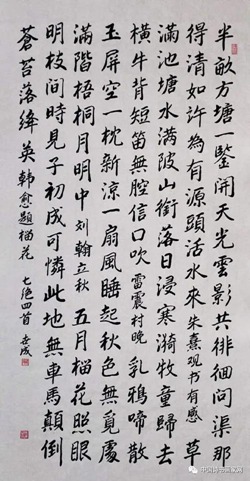 半畝方塘一鑒開天光雲影共徘徊問渠那
得清如許為有源頭活水來 朱熹观书有感 草
滿池塘水满陂山銜落日浸寒漪牧童歸去
橫牛背短笛無腔信口吹 雷震村晚 乳鴉啼散
玉屏空一枕新涼一扇風睡起秋色無覓處
滿階梧桐月明中 刘翰立秋 五月榴花照眼
明枝間時見子初成可憐此地無車馬顛倒
蒼苔落絳英 韓愈題榴花 七绝四首
中国诗书画家网